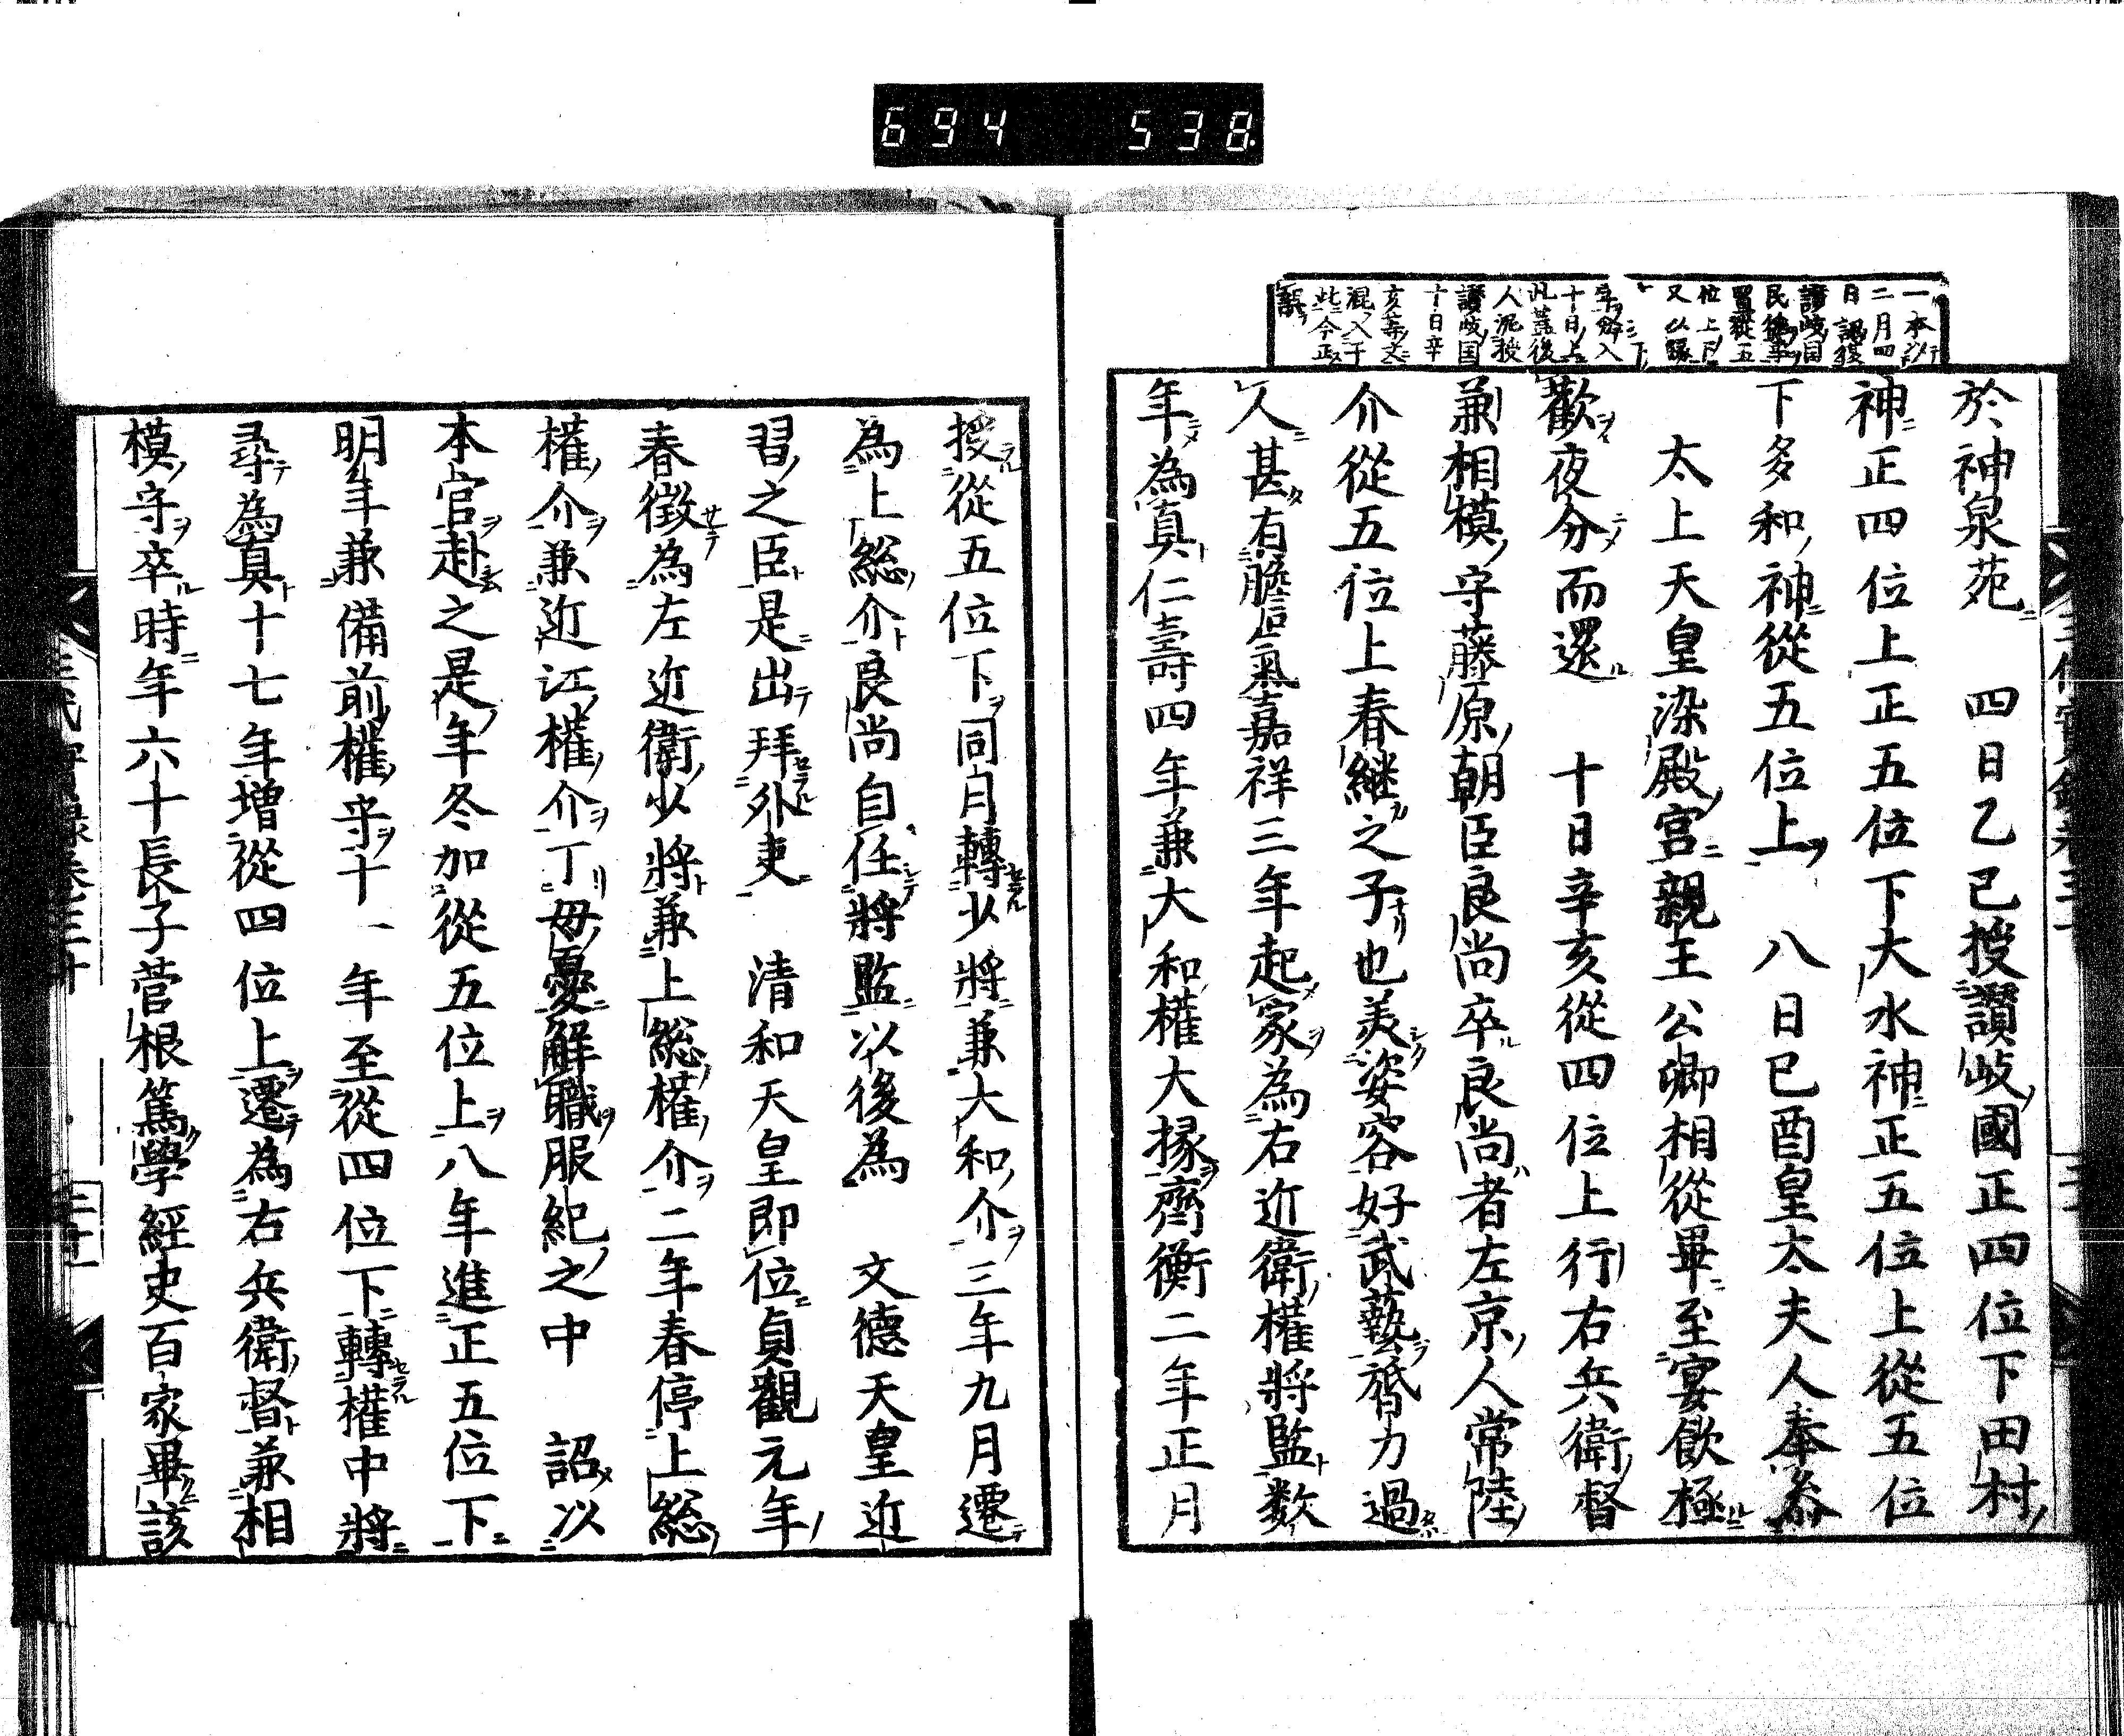 694 538
一本以
二月四
日
讃岐国
又以縁
十日上
此蓋後
人泥授
讃岐国
十日辛
亥
混入于
此今正
於神泉苑 四日乙巳授讃岐國正四位下田村
神正四位上正五位下大水神正五位上從五位
下多和神從五位上 八日己酉皇太夫人奉爲
太上天皇染殿宮親王公卿相從畢至宴飲極
歡夜分而還 十日辛亥從四位上行右兵衛督
兼相模守藤原朝臣良尚卒良尚者左京人常陸
介從五位上春継之子也美姿容好武藝膂力過
人甚有膽氣嘉祥三年起家為右近衛權將監数
年為真仁壽四年兼大和權大掾齊衡二年正月
授從五位下同月轉少將兼大和介三年九月遷
為上総介良尚自任將監以後為 文德天皇近
習之臣是出拜外吏 清和天皇即位貞觀元年
春徴為左近衛少將兼上総權介二年春停上総
權介兼近江權介丁母憂解職服紀之中 詔以
本官赴之是年冬加從五位上八年進正五位下
明年兼備前權守十一年至從四位下轉權中將
尋為真十七年増從四位上遷為右兵衛督兼相
模守卒時年六十長子菅根篤學經史百家畢該